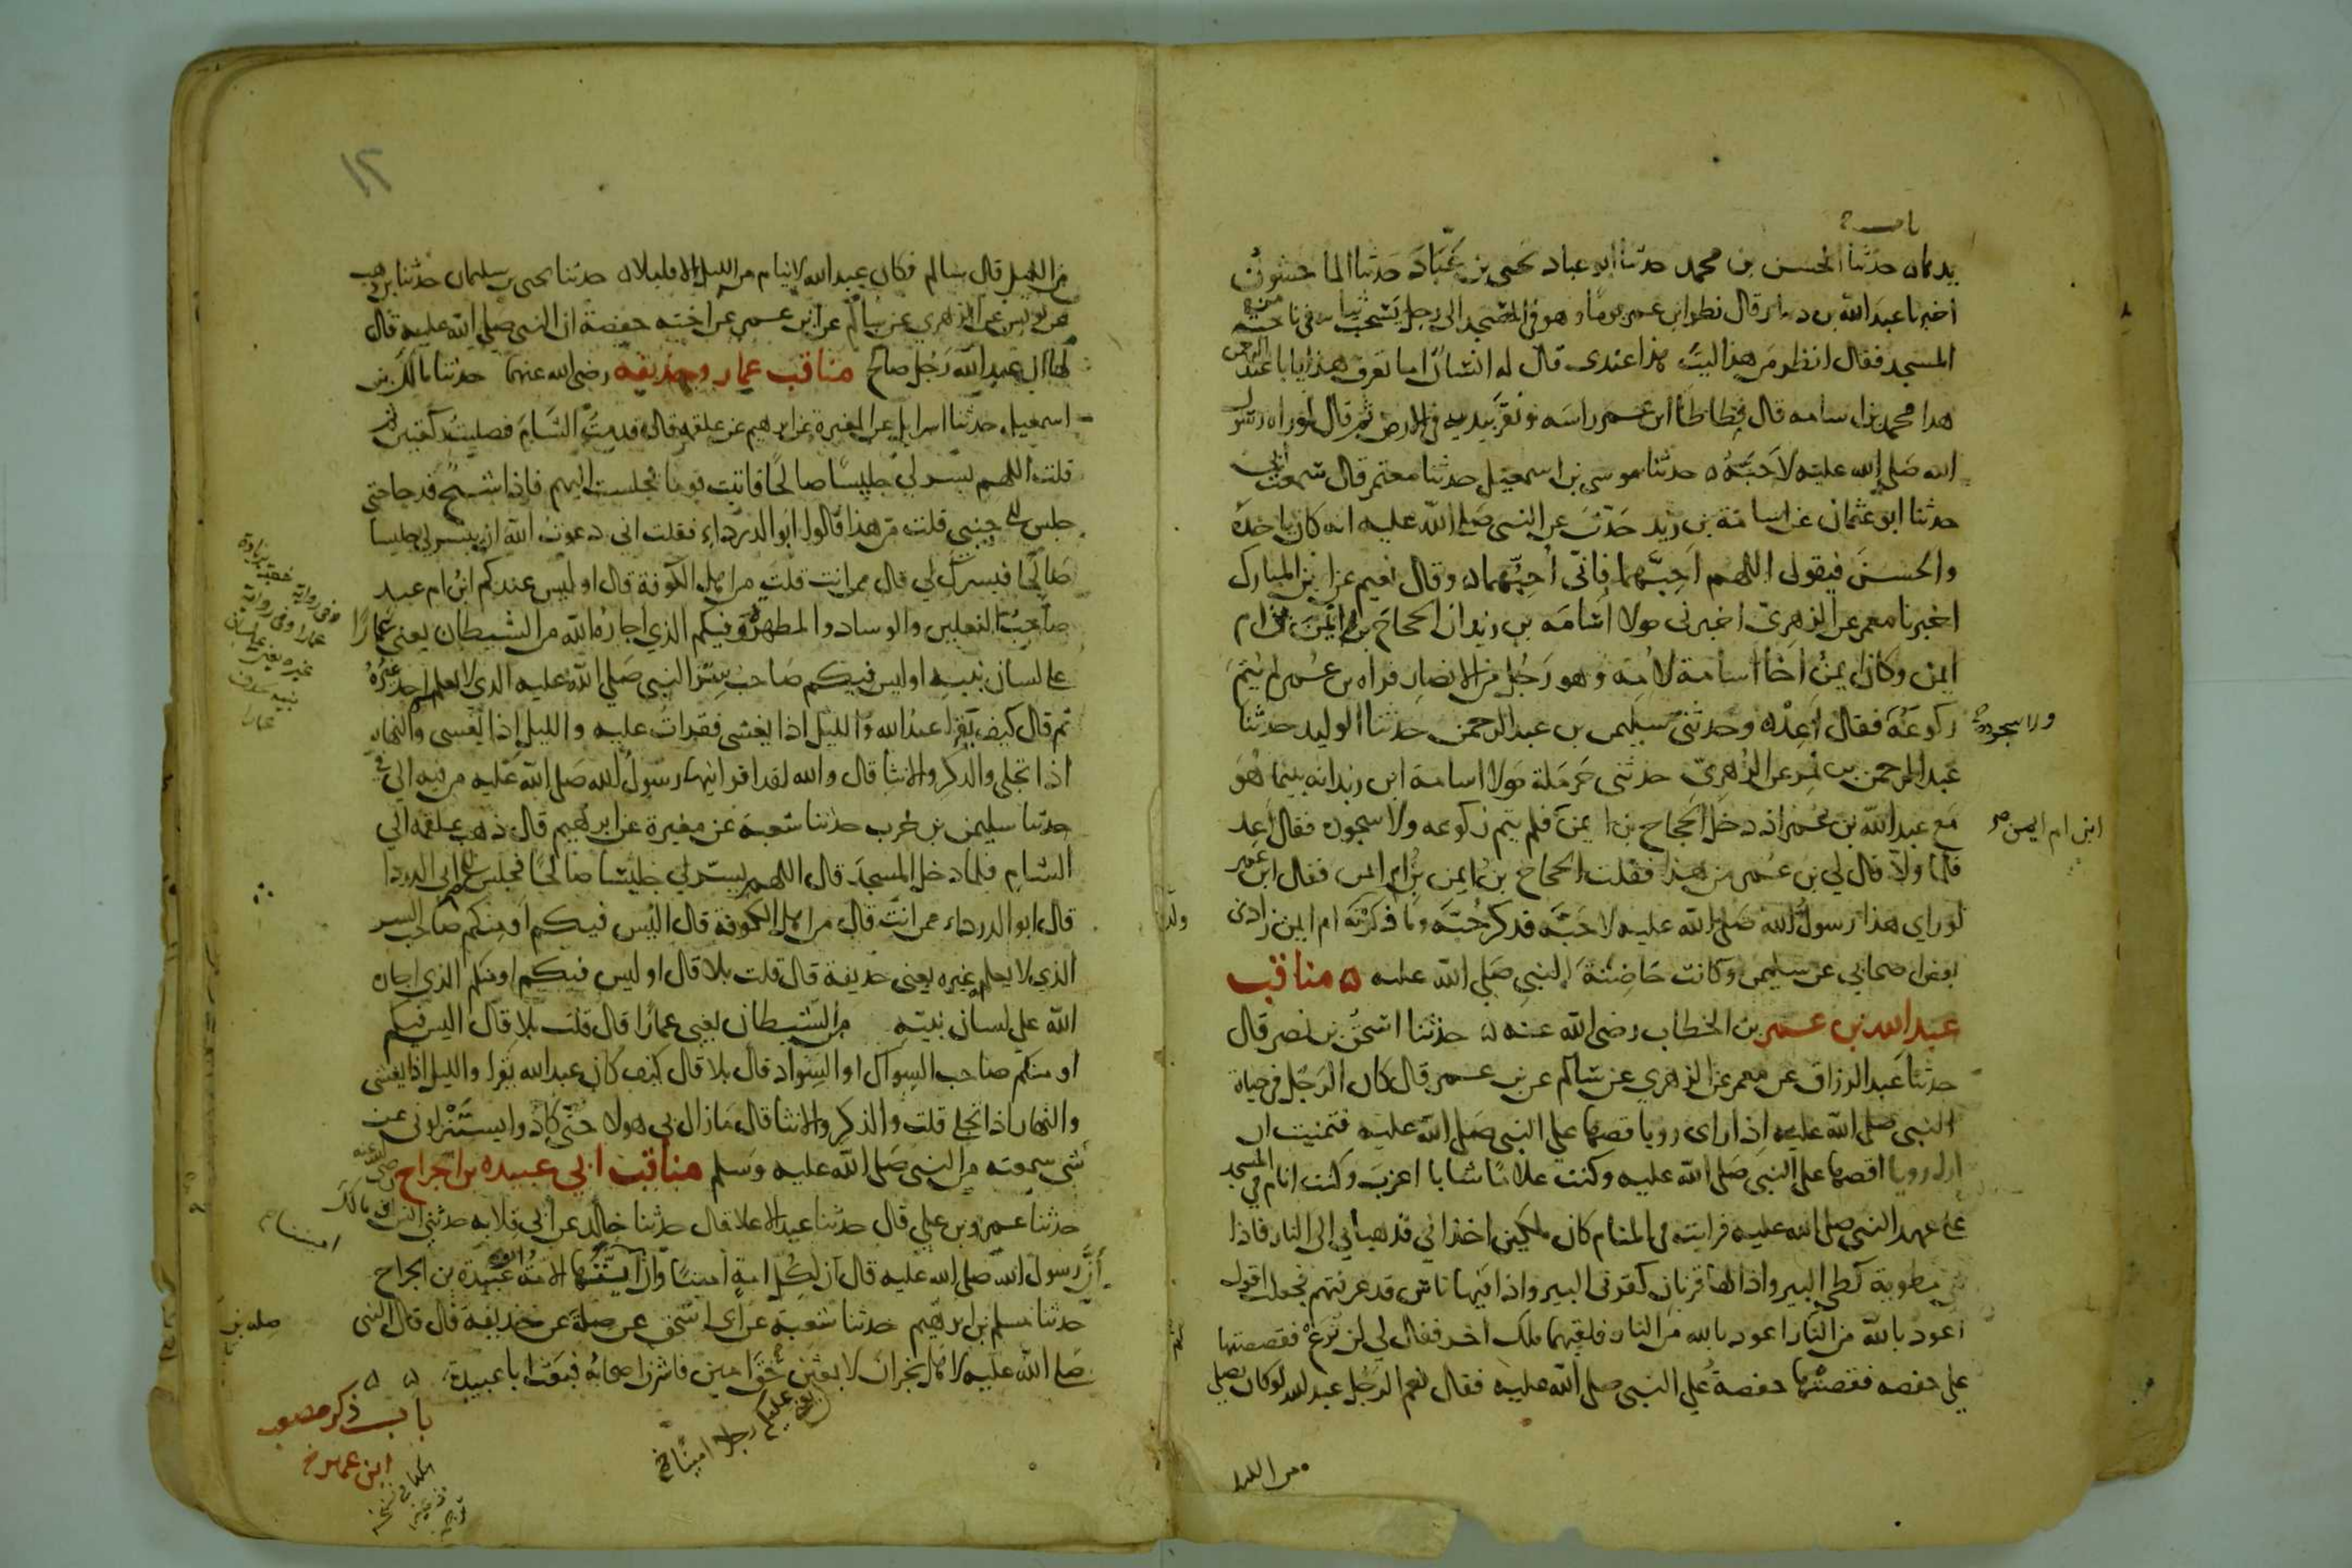 باب
حدثنا الحسن بن محمد حدثنا ابو عباد يحيى بن عباد حدثنا الماجشون
اخبرنا عبد الله بن دينار قال نظر ابن عمر يوما وهو في المسجد الى رجل يسحب ثيابه في ناحية
المسجد فقال انظر من هذا ليت هذا عندي قال له انسان اما تعرف هذا يا با عبد الرحمن
هذا محمد بن اسامه قال فطاطا ابن عمر راسه ونقر بيديه في الارض ثم قال لو راه رسول
الله صلى الله عليه لاحبه حدثنا موسى بن اسمعيل حدثنا معتمر قال سمعت ابي
حدثنا ابو عثمان عن اسامة بن زيد حدث عن النبي صلى الله عليه انه كان ياخذه
والحسن فيقول اللهم احبهما فاني احبهما وقال نعيم عن ابن المبارك
اخبرنا معمر عن الزهري اخبرني مولا اسامه بن زيد ان الحجاج بن ايمن بن ام
ايمن وكان ايمن اخا اسامة لامه وهو رجل من الانصار فراه بن عمر لم يتم
ركوعه فقال اعد وحدثني سليمن بن عبد الرحمن حدثنا الوليد حدثنا
ولا سجوده
عبد الرحمن بن نمر عن الزهري حدثني حرملة مولا اسامة ابن زيد انه بينما هو
مع عبد الله بن عمر اذ دخل الحجاج بن ايمن فلم يتم ركوعه ولا سجوده فقال اعد
ابن ام ايمن
فلما ولا قال لي بن عمر من هذا فقلت الحجاج بن ايمن بن ام ايمن فقال ابن عمر
لو راى هذا رسول الله صلى الله عليه لاحبه فذكر حبه وما ولدته ام ايمن زادني
بعض اصحابي عن سليمن وكانت حاضنة النبي صلى الله عليه مناقب
عبد الله بن عمر بن الخطاب رضى الله عنه حدثنا اسحق بن نصر قال
حدثنا عبد الرزاق عن معمر عن الزهري عن سالم عن بن عمر قال كان الرجل في حياة
النبي صلى الله عليه اذا راى رويا قصها على النبي صلى الله عليه فتمنيت ان
ارى رويا اقصها على النبي صلى الله عليه وكنت غلاما شابا اعزب وكنت انام في المسجد
على عهد النبي صلى الله عليه فرايت في المنام كان ملكين اخذاني فذهبا بي الى النار فاذا
هي مطوية كطي البير واذا لها قرنان كقرني البير واذا فيها ناس قد عرفتهم فجعلت اقول
اعوذ بالله من النار اعوذ بالله من النار فلقيهما ملك اخر فقال لي لن ترع فقصصتها
على حفصه فقصتها حفصة على النبي صلى الله عليه فقال نعم الرجل عبد الله لو كان يصلي
من الليل
١٢
من الليل قال سالم فكان عبد الله لا ينام من الليل الا قليلا حدثنا يحيى بن سليمان حدثنا بن وهب
عن يونس عن الزهري عن سالم عن ابن عمر عن اخته حفصة ان النبي صلى الله عليه قال
لها ان عبد الله رجل صالح مناقب عمار وحذيفه رضى الله عنهما حدثنا مالك بن
اسمعيل حدثنا اسرايل عن المغيرة عن ابرهيم عن علقمه قال قدمت الشام فصليت ركعتين ثم
قلت اللهم يسر لي جليسا صالحا فاتيت قوما فجلست اليهم فاذا شيخ قد جا حتى
جلس الى جنبي قلت من هذا قالوا ابو الدرداء فقلت اني دعوت الله ان ييسر لي جليسا
صالحا فيسرك لي قال ممن انت قلت من اهل الكوفة قال اوليس عندكم ابن ام عبد
صاحب النعلين والوساد والمطهرة وفيكم الذي اجاره الله من الشيطان يعني عمارا
على لسان نبيه اوليس فيكم صاحب سر النبي صلى الله عليه الذي لا يعلم احد غيره
ثم قال كيف يقرا عبد الله والليل اذا يغشى فقرات عليه والليل اذا يغشى والنهار
اذا تجلى والذكر والانثا قال والله لقد اقرانيها رسول الله صلى الله عليه من فيه الى في
حدثنا سليمن بن حرب حدثنا شعبة عن مغيرة عن ابرهيم قال ذهب علقمه الى
الشام فلما دخل المسجد قال اللهم يسر لي جليسا صالحا فجلس الى ابي الدردا
قال ابو الدرداء ممن انت قال من اهل الكوفة قال اليس فيكم او منكم صاحب السر
الذي لا يعلم غيره يعني حذيفة قال قلت بلا قال اوليس فيكم او منكم الذي اجاره
الله على لسان نبيه من الشيطان يعني عمارا قال قلت بلا قال اليس فيكم
او منكم صاحب السواك او السواد قال بلا قال كيف كان عبد الله يقرا والليل اذا يغشى
والنهار اذا تجلى قلت والذكر والانثا قال مازال بي هولا حتى كادوا يستنزلوني عن
شي سمعته من النبي صلى الله عليه وسلم مناقب ابي عبيده بن الجراح رضى الله عنه
حدثنا عمرو بن علي قال حدثنا عبد الاعلا قال حدثنا خالد عن ابي قلابه حدثني انس بن مالك
ان رسول الله صلى الله عليه قال ان لكل امة امينا وان اميننا ايتها الامة ابو عبيدة بن الجراح
اميننا
حدثنا مسلم بن ابرهيم حدثنا شعبة عن ابي اسحق عن صلة عن حذيفة قال قال النبي
صله بن
صلى الله عليه لاهل نجران لابعثن حق امين فاشرف اصحابه فبعث ابا عبيدة
عليكم رجلا امينا
باب ذكر مصعب
ابن عمير